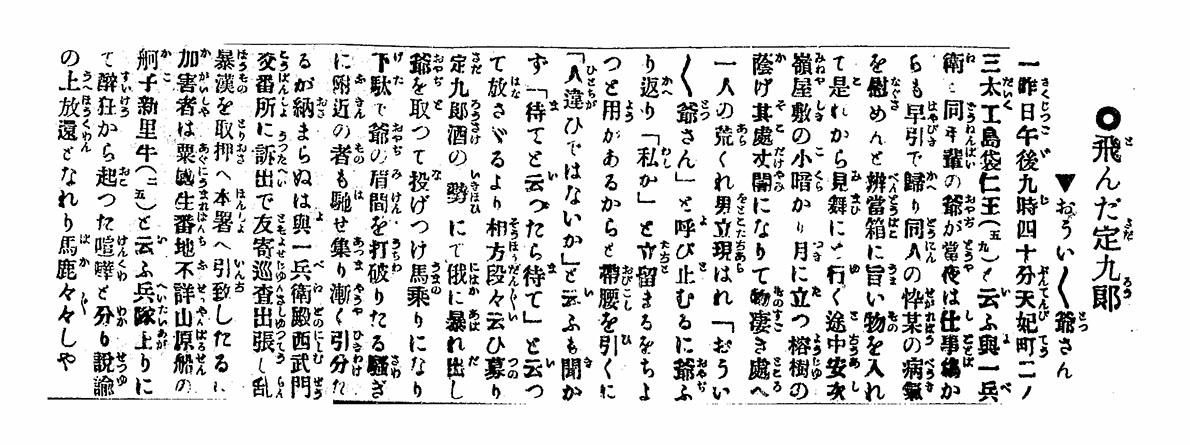 ◎飛んだ定九郎
▼おうい〱爺さん
一昨日午後九時四十分天妃町二ノ
三大工島袋仁王(五九)と云ふ與一兵
衛と同年輩の爺が當夜は仕事塲か
らも早引で歸り同人の悴某の病氣
を慰めんと辨當箱に旨い物を入れ
て是れから見舞にと行く途中安次
嶺屋敷の小暗かり月に立つ榕樹の
蔭げ其處丈闇になりて物凄き處へ
一人の荒くれ男立現はれ「おうい
〱爺さん」と呼び止むるに爺ふ
り返り「私か」と立留まるをちよ
つと用があるからと帶腰を引くに
「人違ひではないか」と云ふも聞か
ず「待てと云つたら待て」と云つ
て放さゞるより相方段々云ひ募り
定九郎酒の勢にて俄に暴れ出し
爺を取つて投げつけ馬乘りになり
下駄で爺の眉間を打破りたる騷ぎ
に附近の者も馳せ集り漸く引分た
るが納まらぬは與一兵衛殿西武門
交番所に訴出で友寄巡査出張し乱
暴漢を取押へ本署へ引致したるに
加害者は粟國生番地不詳山原船の
舸子新里牛(二五)と云ふ兵隊上りに
て醉狂から起つた喧嘩と分り說諭
の上放還となれり馬鹿々々しや